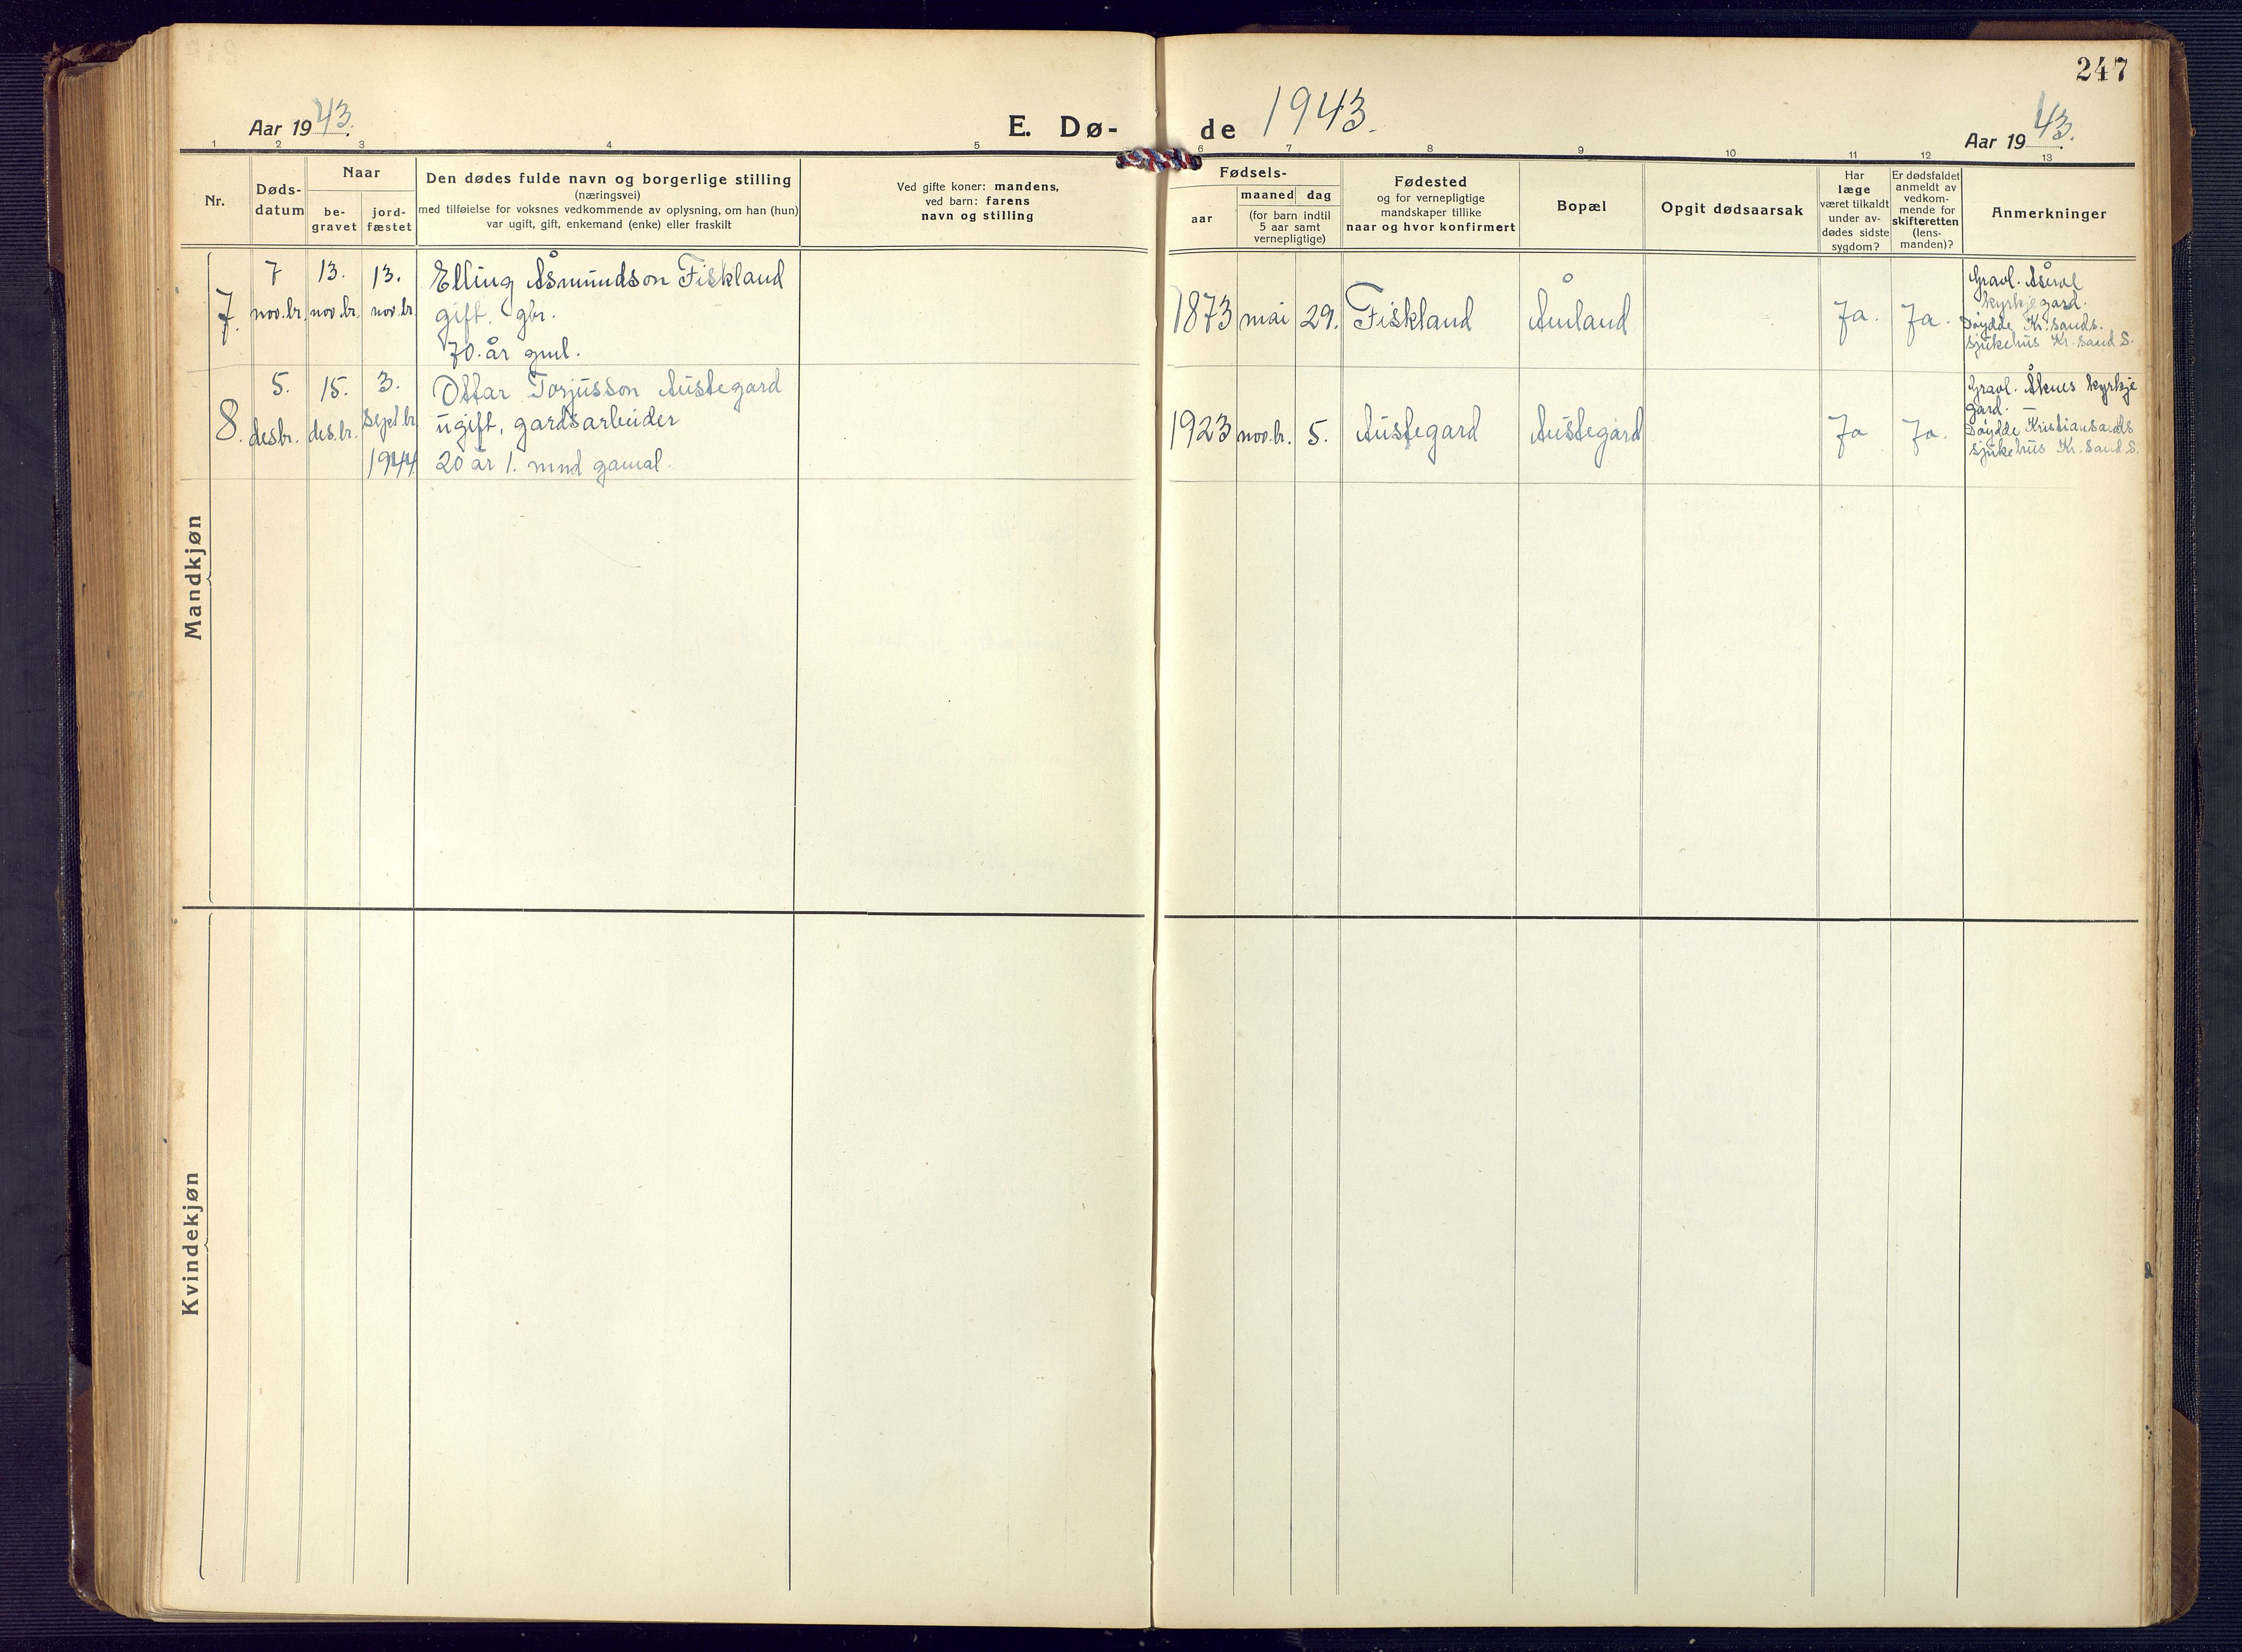 247
Aar 1943.
E. Dø-
de 1943.
Aar 1943.
1 2 3 4 5 6 7 8 9 10 11 12 13
Nr.
Døds-
datum
Naar
be-
gravet
jord-
fæstet
Den dødes fulde navn og borgerlige stilling
(næringsvei)
med tilføielse for voksnes vedkommende av oplysning, om han (hun)
var ugift, gift, enkemand (enke) eller fraskilt
Ved gifte koner: mandens,
ved barn: farens
navn og stilling
Fødsels-
aar
maaned dag
(for barn indtil
5 aar samt
vernepligtige)
Fødested
og for vernepligtige
mandskaper tillike
naar og hvor konfirmert
Bopæl
Opgit dødsaarsak
Har
læge
været tilkaldt
under av-
dødes sidste
sygdom?
Er dødsfaldet
anmeldt av
vedkom-
mende for
skifteretten
(lens-
manden)?
Anmerkninger
Mandkjøn
7.
7
nov.br.
13.
nov.br.
13.
nov.br.
Elling Åsmundson Fiskland
gift. gbr.
70. år gml.
1873
mai
29.
Fiskland
Åmland
Ja.
Ja.
Gravl. Åseral
kyrkjegard.
Døydde Kr.sands.
sjukehus Kr.sand S.
8.
5.
desbr.
15.
des.br.
3.
sept.br.
1944
Ottar Torjusson Austegard
ugift, gardsarbeider
20 år 1. mnd gamal.
1923
nov.br.
5.
Austegard
Austegard
Ja
Ja.
Gravl. Åknes kyrkje
gard. —
Døydde Kristiansands
sjukehus Kr.sand S.
Kvindekjøn